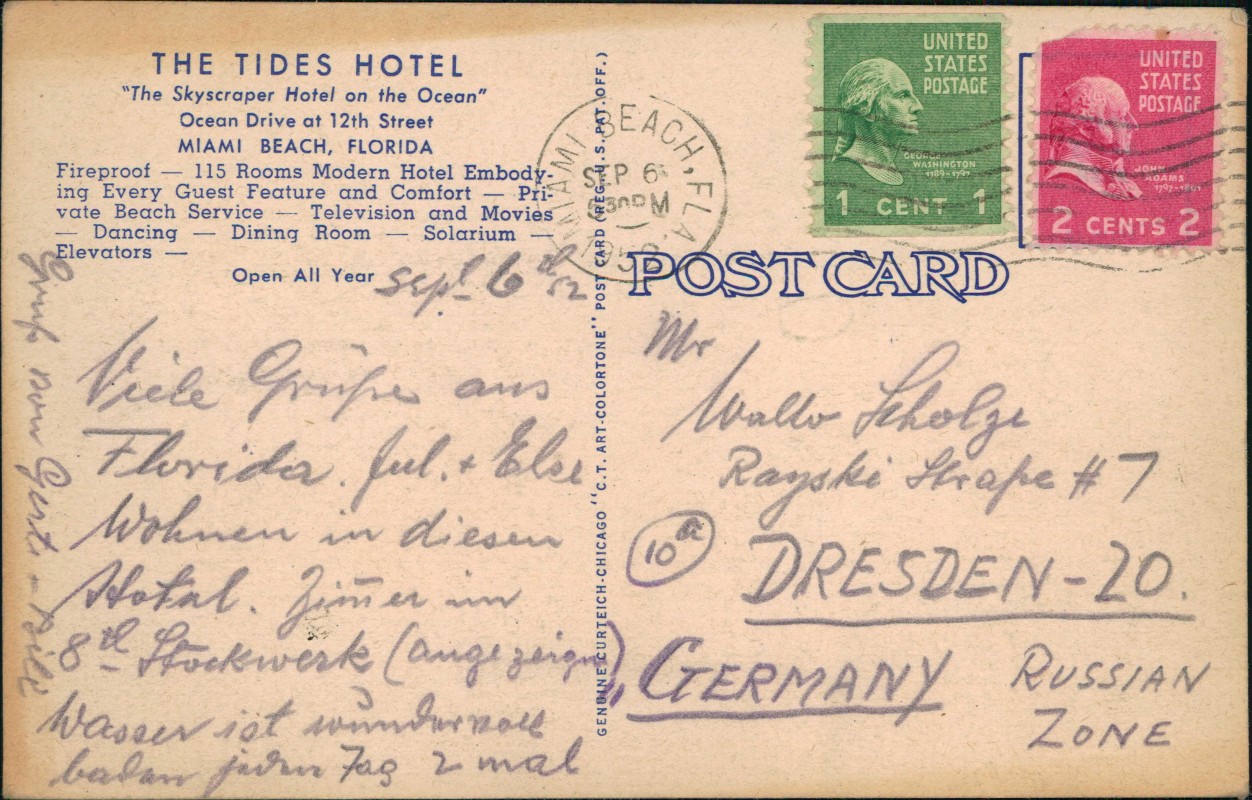 THE TIDES HOTEL
"The Skyscraper Hotel on the Ocean"
Ocean Drive at 12th Street
MIAMI BEACH, FLORIDA
Fireproof — 115 Rooms Modern Hotel Embody-
ing Every Guest Feature and Comfort — Pri-
vate Beach Service — Television and Movies
— Dancing — Dining Room — Solarium —
Elevators —
Open All Year
Sept. 6th 52
Viele Grüße aus
Florida. Jul. + Else
Wohnen in diesen
Hotel. Zim̄er im
8th Stockwerk (angezeigt)
Wasser ist wundervoll
baden jeden Tag 2 mal
Gruß von
GENUINE CURTEICH-CHICAGO "C.T. ART-COLORTONE" POST CARD (REG. U.S. PAT. OFF.)
MIAMI BEACH, FLA.
SEP 6
30 PM
195
UNITED
STATES
POSTAGE
GEORGE
WASHINGTON
1789-1797
1 CENT 1
UNITED
STATES
POSTAGE
JOHN
ADAMS
1797-1801
2 CENTS 2
POST CARD
Mr
Scholze
Rayski Straße # 7
10a
DRESDEN-20.
GERMANY
RUSSIAN
ZONE